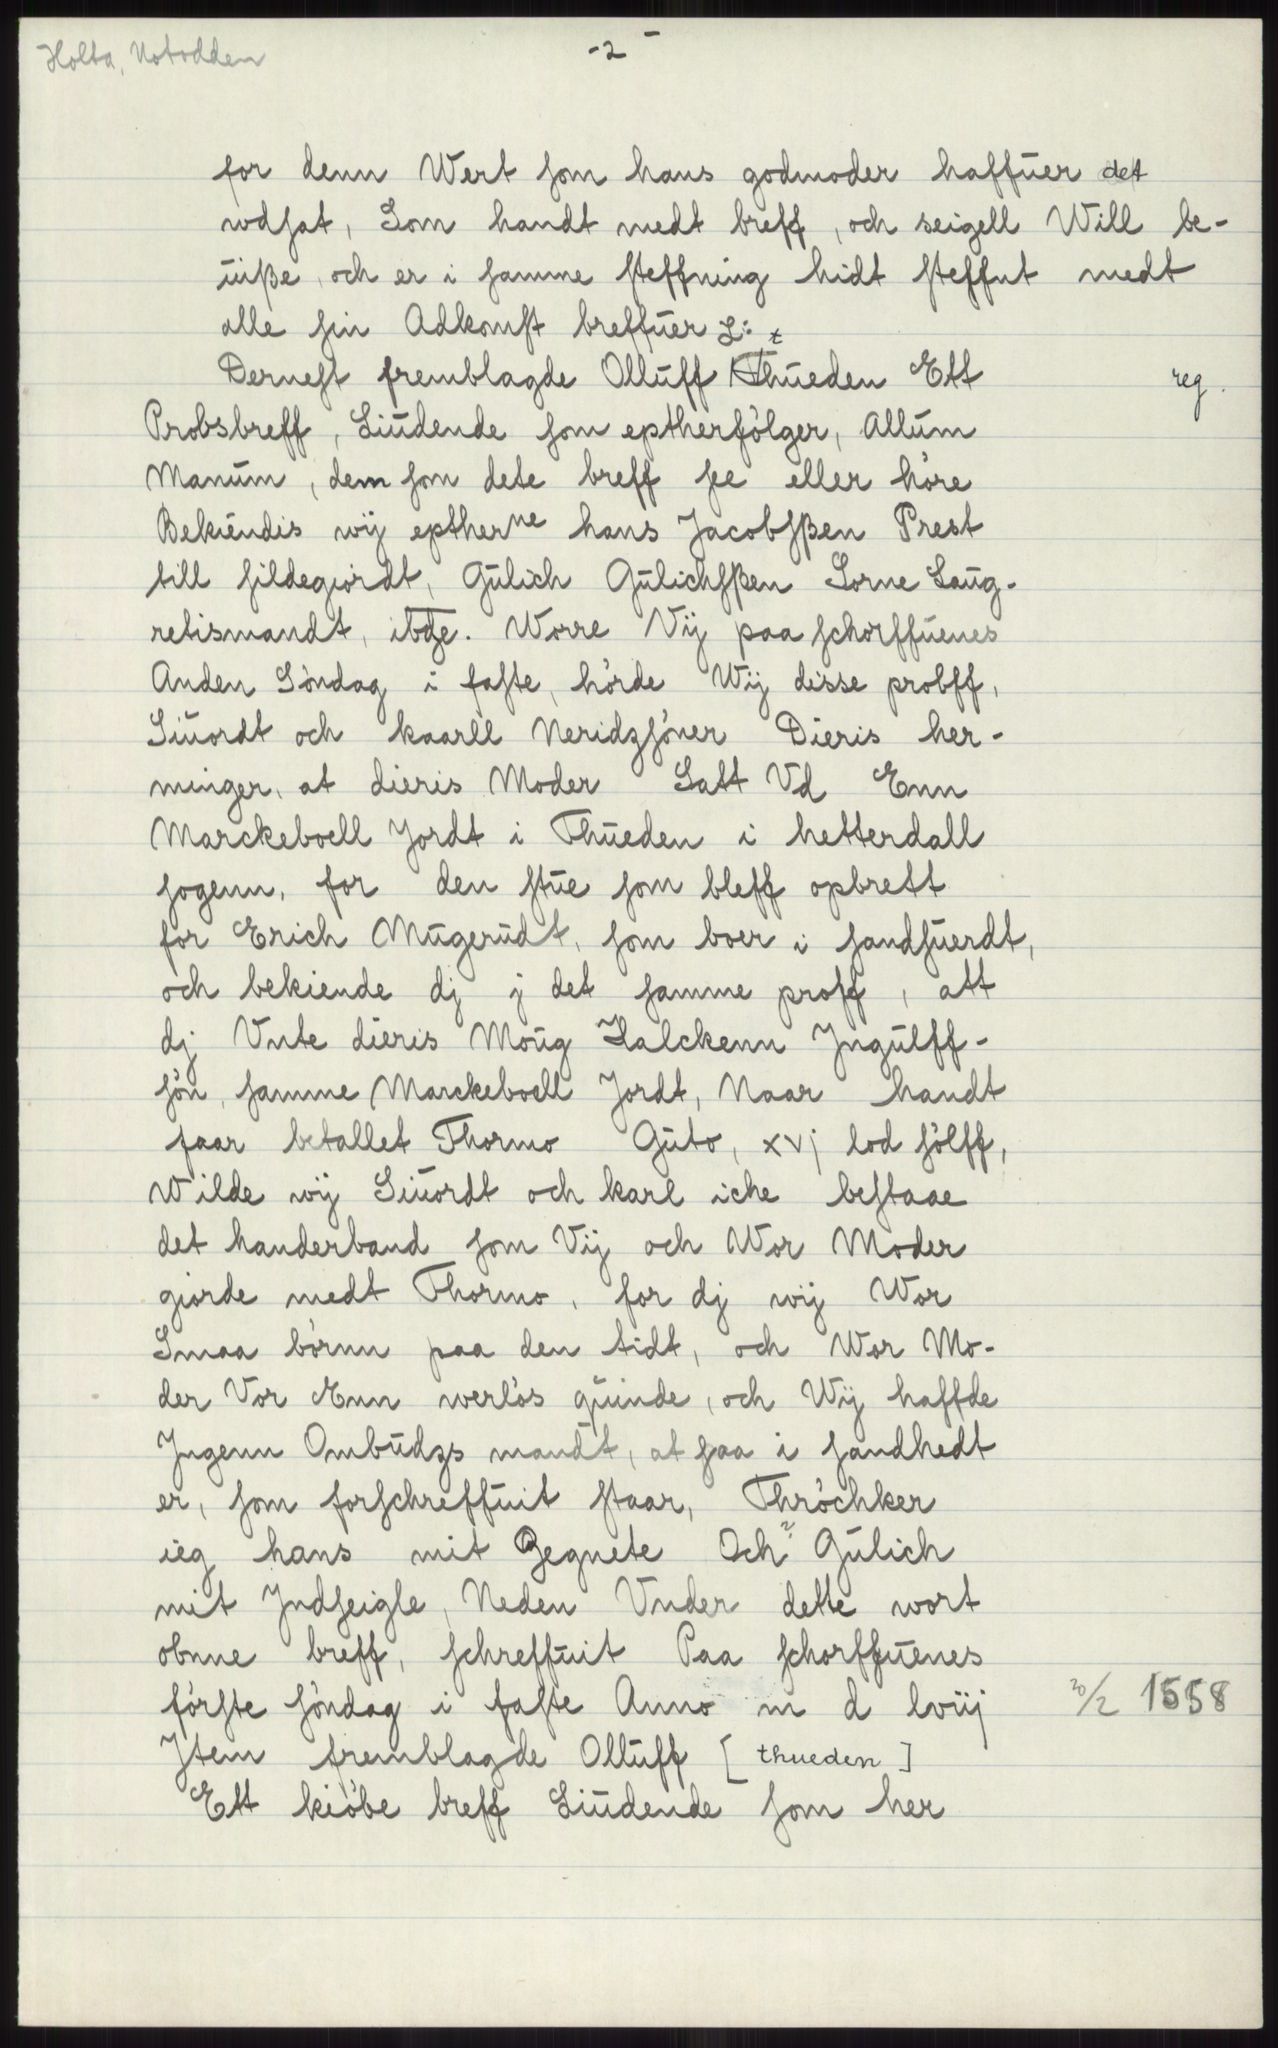 Holta, Notodden
-2-
for denn Wert som hans godmoder haffuer det
wdsat, Som handt medt breff, och seigell Will be-
uiße, och er i samme steffning hidt steffnt medt
alle sin Adkomst breffuer
Dernest fremblagde Olluff Thueden Ett
reg.
Probsbreff, Liudende som eptherfölger, Allum
Manum, dem som dete breff see eller höre
Bekiendis wij eptherne hans Jacobsßen Prest
till hildegiordt, Gulich Gulichsßen Sorne Laug-
retismandt, ibde. Worre Vij paa schorffuenes
Anden Söndag i faste, hörde Wij disse probff,
Siuordt och kaarll Neridzsöner Dieris her-
minger, at dieris Moder Satt Vd Enn
Marckeboell Jordt i Thueden i hetterdall
sogenn, for den stue som bleff opbrett
for Erich Mugerudt, som boer i sandsuerdt,
och bekiende dj j det samme proff, att
dj Vnte dieris Moug Halckenn Jngulff-
sön, samme Marckeboell Jordt, Naar handt
faar betallet Thormo Guto, xvj lod sölff,
Wilde wij Siuordt och karl icke bestaae
det handerband som Vij och Wor Moder
giorde medt Thormo, for dj wij Wor
Smaa börnn paa den tidt, och Wor Mo-
der Vor Enn werlös quinde, och Wij haffde
Jngenn Ombudzs mandt, at saa i sandhedt
er, som forschreffuit staar, Thröchker
ieg hans mit Zegnete Och? Gulich
mit Jndseigle, Neden Vnder dette wort
obnne breff, schreffuit Paa schorffuenes
förste söndag i faste Anno m d lviij
20/2 1558
Jtem fremblagde Olluff [thueden]
Ett kiöbe breff Liudende som her